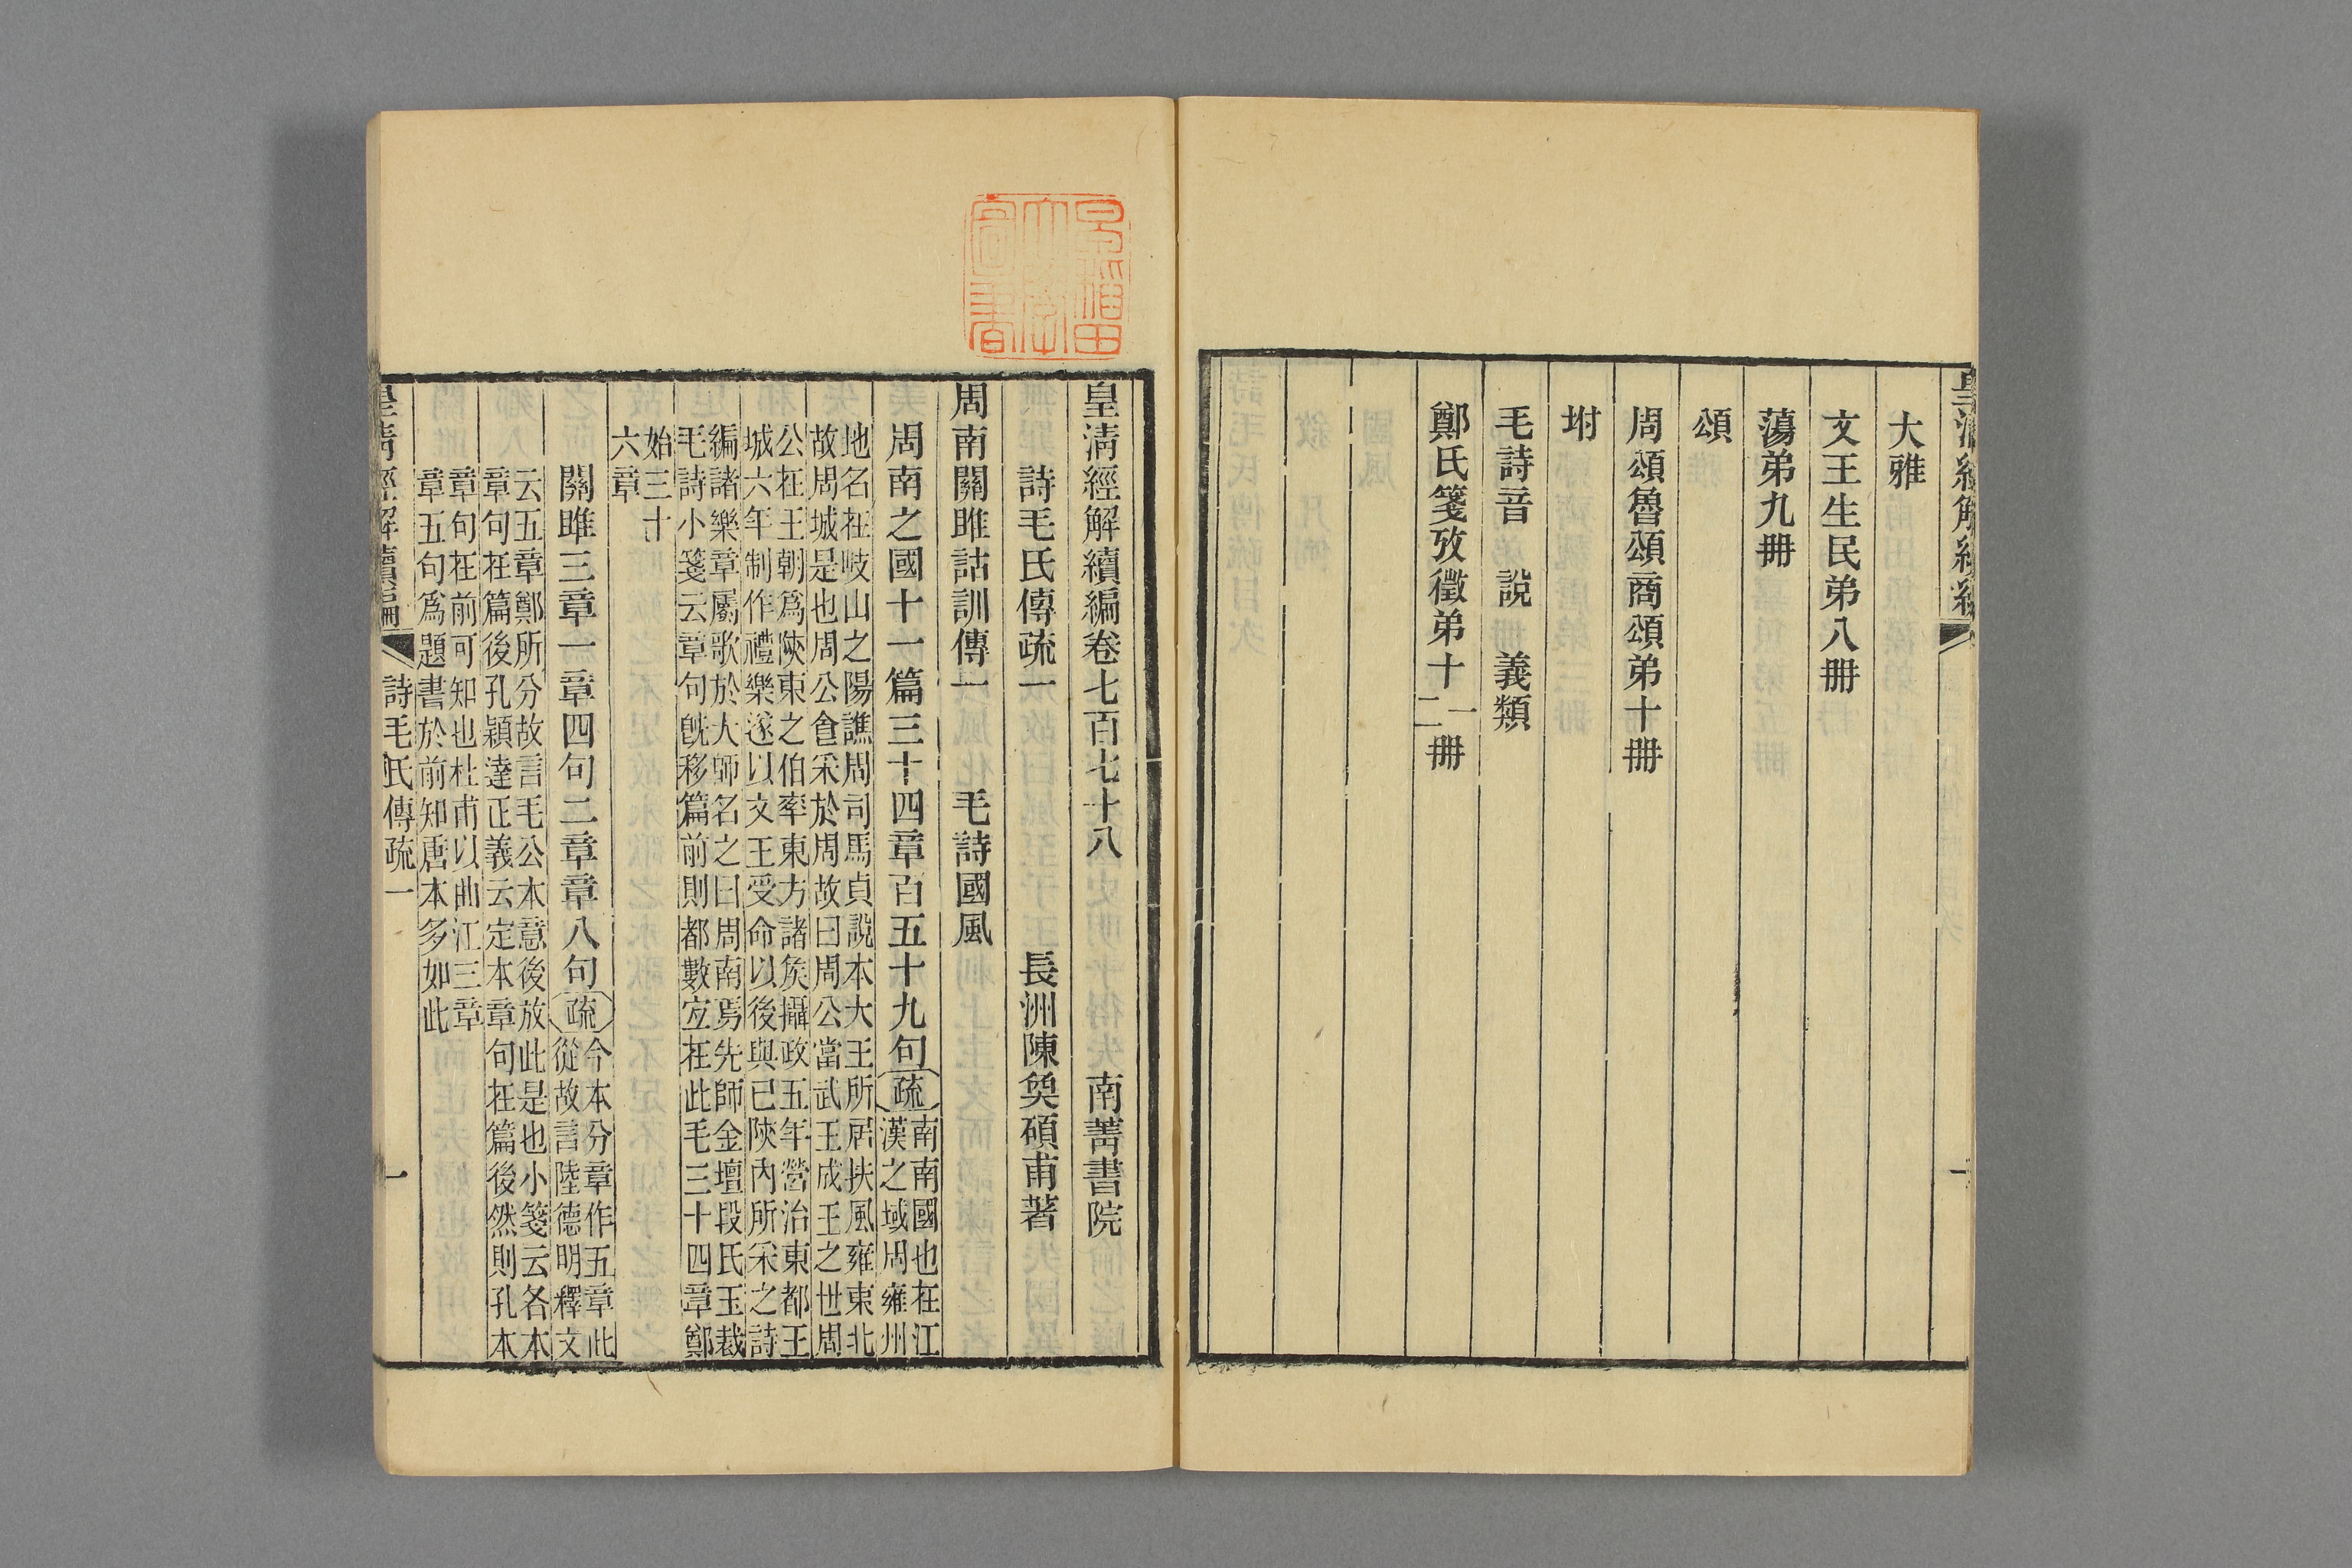 大雅
文王生民弟八冊
蕩弟九冊
頌
周頌魯頌商頌弟十冊
坿
毛詩音　說　義類
鄭氏箋攷徵弟十一二冊
早稻田大學圖書
皇淸經解續編卷七百七十八　南菁書院
詩毛氏傳疏一　長洲陳奐碩甫著
周南關雎詁訓傳一　毛詩國風
周南之國十一篇三十四章百五十九句疏南南國也在江
漢之域周雍州
地名在岐山之陽譙周司馬貞說本大王所居扶風雍東北
故周城是也周公食采於周故曰周公當武王成王之世周
公在王朝爲陝東之伯率東方諸矦攝政五年營治東都王
城六年制作禮樂遂以文王受命以後與已陝內所采之詩
編諸樂章屬歌於大師名之曰周南焉先師金壇段氏玉裁
毛詩小箋云章句旣移篇前則都數宐在此毛三十四章鄭
始三十
六章
關雎三章一章四句二章章八句疏今本分章作五章此
從故言陸德明釋文
云五章鄭所分故言毛公本意後放此是也小箋云各本
章句在篇後孔穎達正義云定本章句在篇後然則孔本
章句在前可知也杜甫以曲江三章
章五句爲題書於前知唐本多如此
皇淸經解續編　詩毛氏傳疏一　一